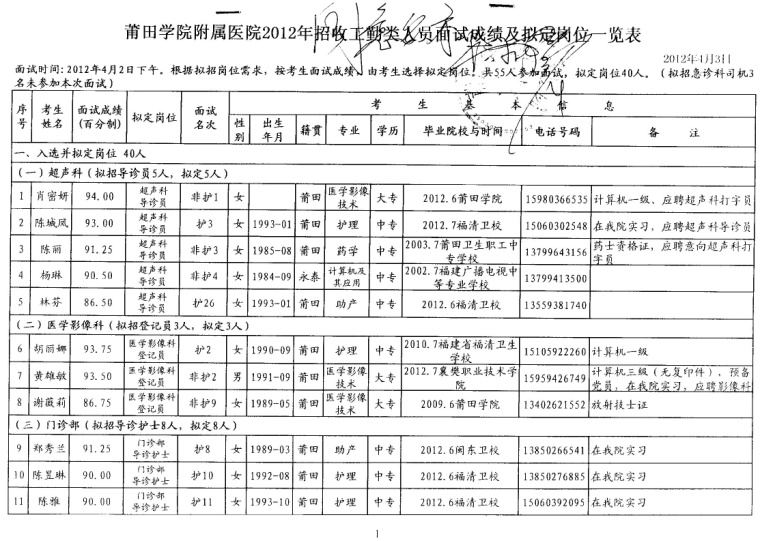 莆田学院附属医院2012年招收工勤类人员面试成绩及拟定岗位一览表
2012年4月3日
面试时间:2012年4月2日下午。根据拟招岗位需求,按考生面试成绩,由考生选择拟定岗位。共55人参加面试,拟定岗位40人。(拟招急诊科司机3
名未参加本次面试)
序号 考生姓名 面试成绩(百分制) 拟定岗位 面试名次 考生基本信息
性别 出生年月 籍贯 专业 学历 毕业院校与时间 电话号码 备注
一、入选并拟定岗位 40人
(一)超声科(拟招导诊员5人,拟定5人)
1 肖密妍 94.00 超声科导诊员 非护1 女 莆田 医学影像技术 大专 2012.6莆田学院 15980366535 计算机一级、应聘超声科打字员
2 陈城凤 93.00 超声科导诊员 护3 女 1993-01 莆田 护理 中专 2012.7福清卫校 15060302548 在我院实习,应聘超声科导诊员
3 陈丽 91.25 超声科导诊员 非护3 女 1985-08 莆田 药学 中专 2003.7莆田卫生职工中专学校 13799643156 药士资格证,应聘意向超声科打字员
4 杨琳 90.50 超声科导诊员 非护4 女 1984-09 永泰 计算机及其应用 中专 2002.7福建广播电视中等专业学校 13799413500
5 林芬 86.50 超声科导诊员 护26 女 1993-01 莆田 助产 中专 2012.6福清卫校 13559381740
(二)医学影像科(拟招登记员3人,拟定3人)
6 胡丽娜 93.75 医学影像科登记员 护2 女 1990-09 莆田 护理 中专 2010.7福建省福清卫生学校 15105922260 计算机一级
7 黄雄敏 93.50 医学影像科登记员 非护2 男 1991-09 莆田 医学影像技术 大专 2012.7襄樊职业技术学院 15959426749 计算机三级(无复印件),预备党员,在我院实习,应聘影像科
8 谢薇莉 86.75 医学影像科登记员 非护9 女 1989-05 莆田 医学影像技术 大专 2009.6莆田学院 13402621552 放射技士证
(三)门诊部(拟招导诊护士8人,拟定8人)
9 郑秀兰 91.25 门诊部导诊护士 护8 女 1989-03 莆田 助产 中专 2012.6闽东卫校 13850266541 在我院实习
10 陈昱琳 90.00 门诊部导诊护士 护10 女 1992-08 莆田 护理 中专 2012.6福清卫校 13850276885 在我院实习
11 陈雅 90.00 门诊部导诊护士 护11 女 1993-10 莆田 护理 中专 2012.6福清卫校 15060392095 在我院实习
1